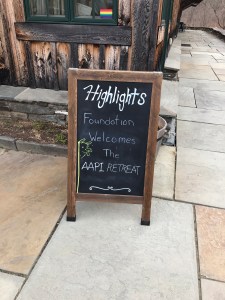 Highlights
Foundation
Welcomes
The
AAPI RETREAT